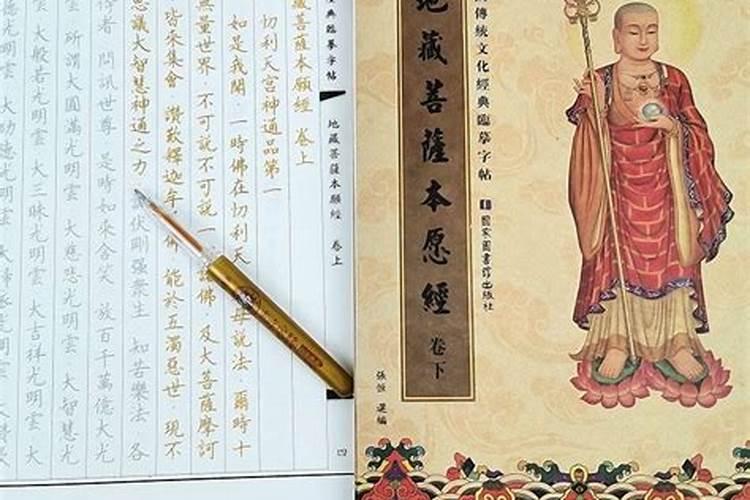 傳統文化經典臨摹字帖
國家圖書館出版社
地藏菩薩本愿經 卷下
張恒 選編
經典臨摹字帖
地藏菩薩本願經 卷上
四
藏菩薩本願經 卷上
忉利天宮神通品第一
如是我聞 一時佛在忉利天 母說法 爾時十
無量世界 不可說不可說 一 諸佛 及大菩薩摩訶
皆來集會 讚歎釋迦牟 佛 能於五濁惡世 現不
思議大智慧神通之力 伏剛强衆生 知苦樂法 各
侍者 問訊世尊 是時如來含笑 放百千萬億大光
所謂大圓滿光明雲 大慈悲光明雲 大智慧光
雲 大般若光明雲 大三昧光明雲 大吉祥光明雲 大
德光明雲 大功德光明雲 大